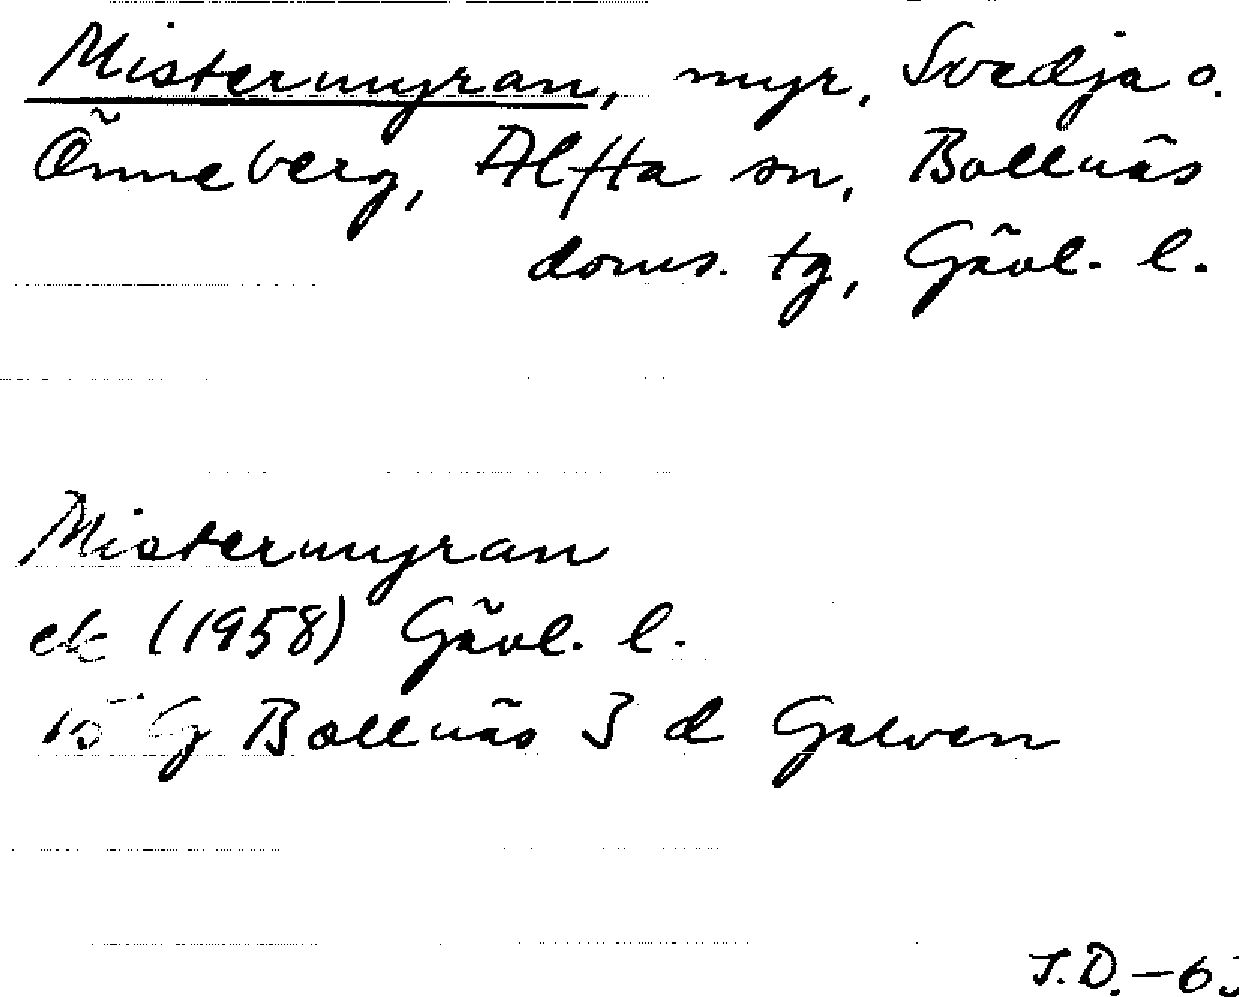 Mistermyran, myr, Svedja o.
Önneberg, Alfta sn, Bollnäs
doms. tg, Gävl. l.
Mistermyran
ek (1958) Gävl. l.
15 G Bollnäs 3 d Galven
J.D.-6